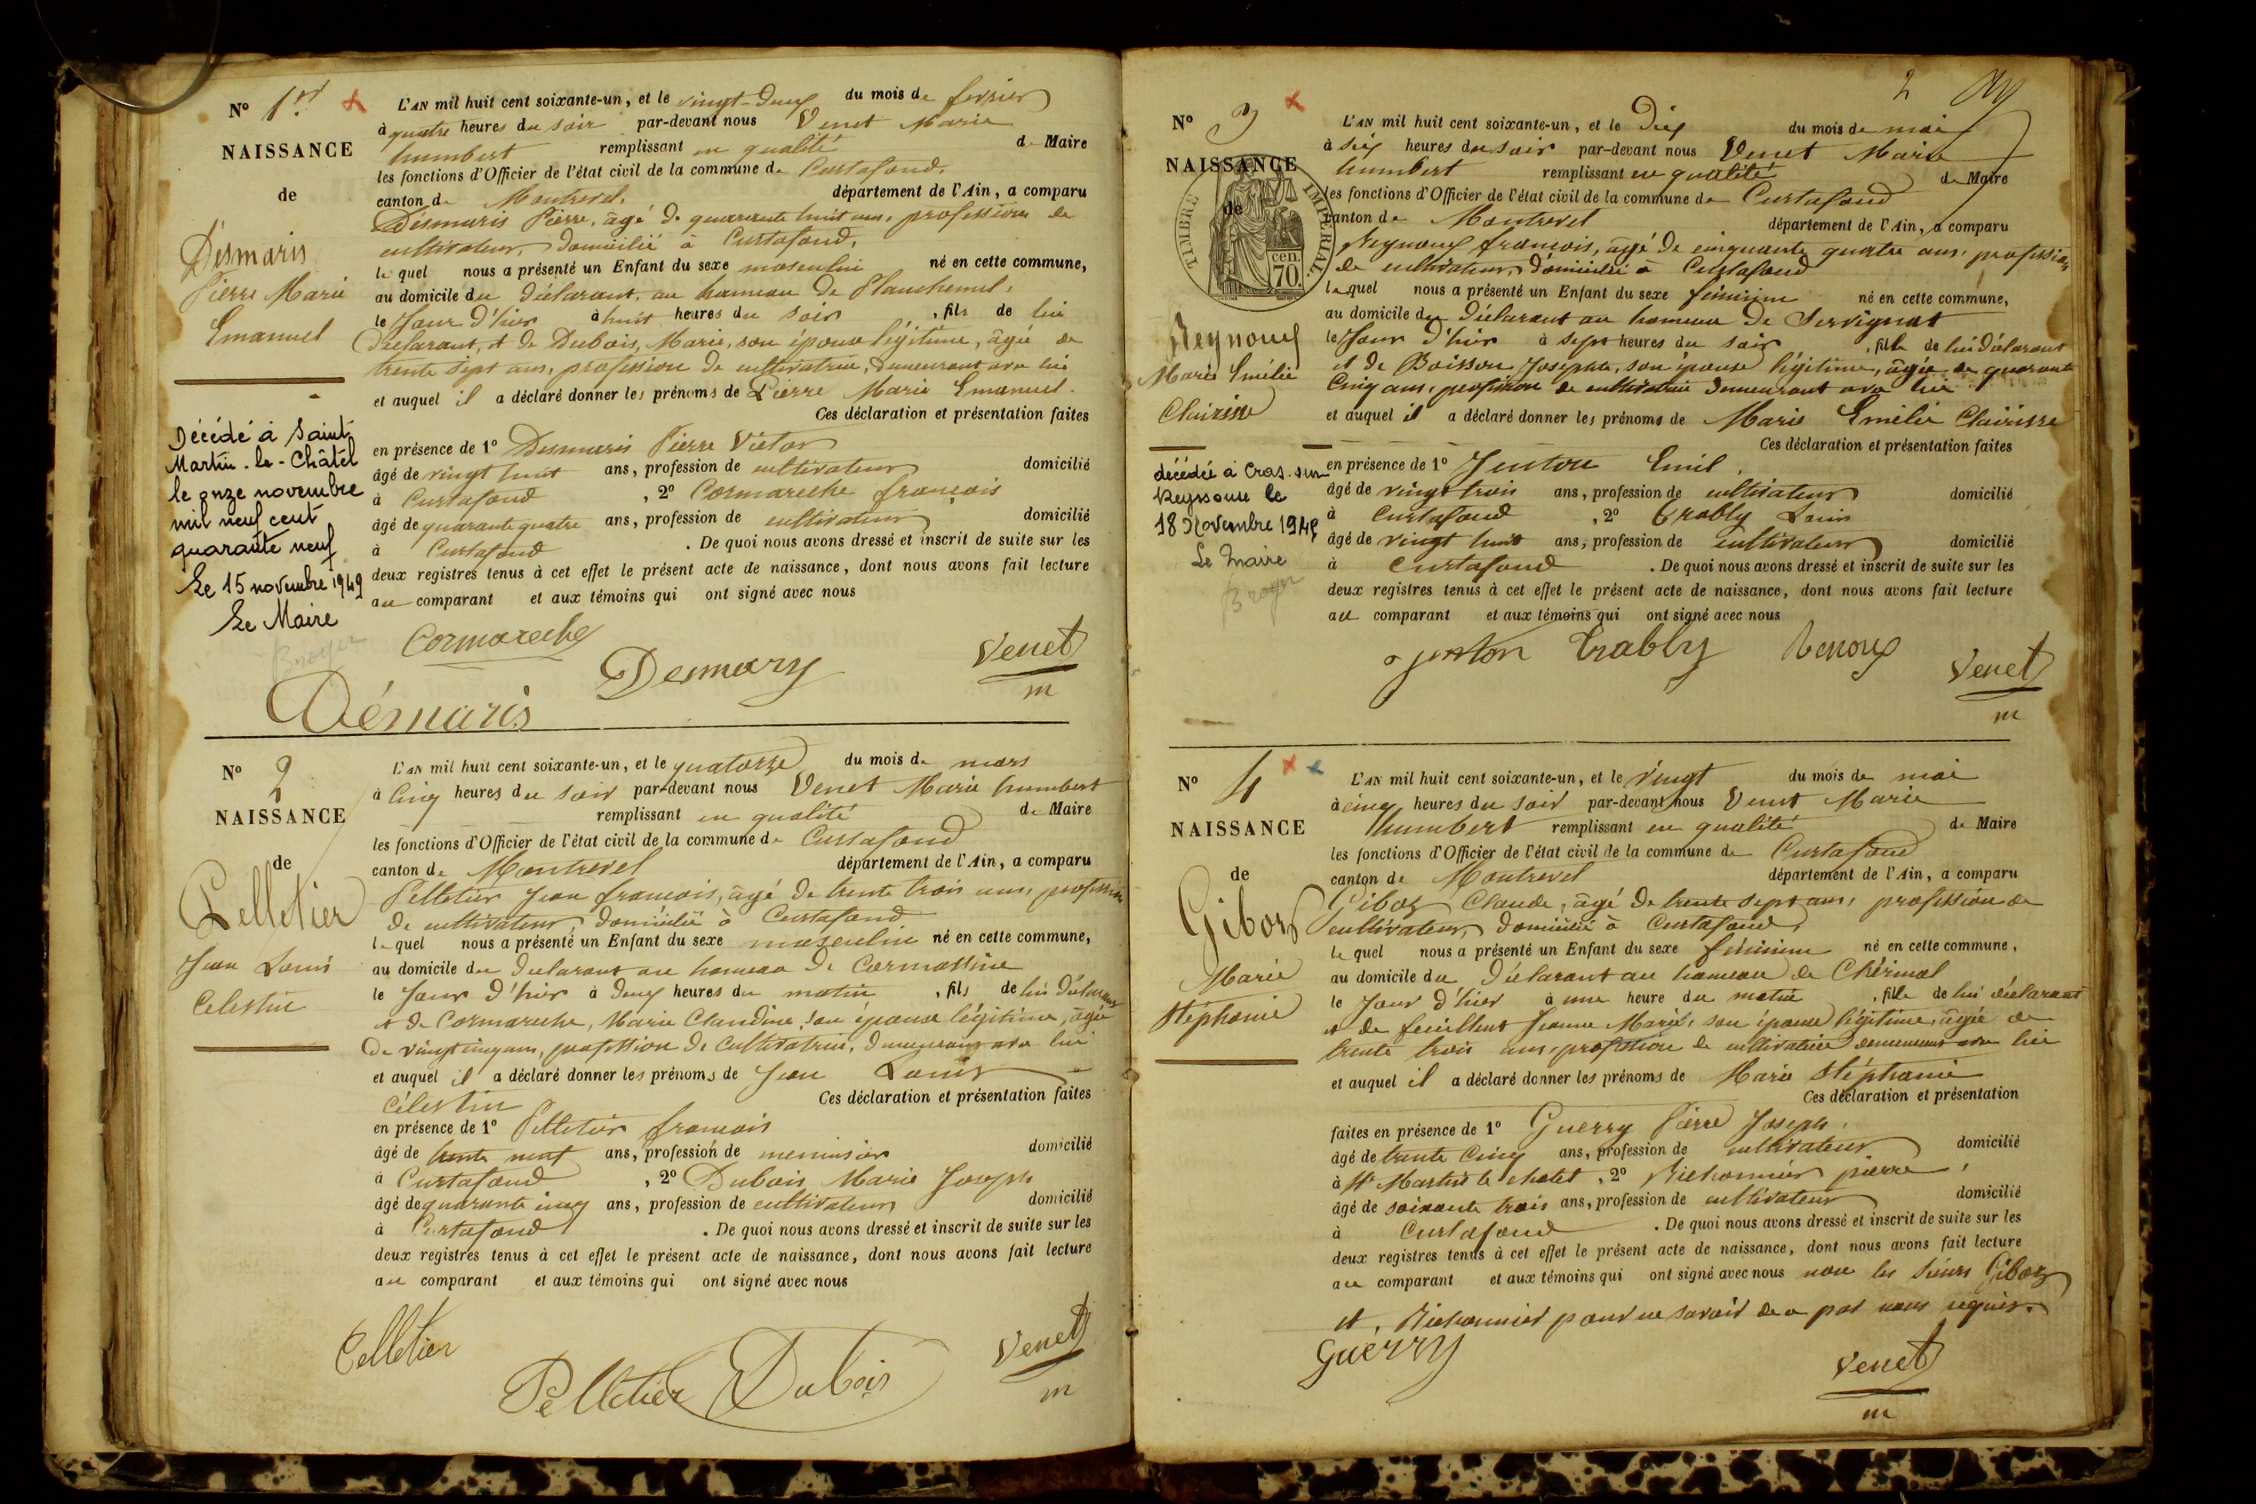 N° 1er
NAISSANCE
de
Désmaris
Pierre Marie
Emanuel
Décédé à Saint
Martin-le-Châtel
le onze novembre
mil neuf cent
quarante neuf
Le 15 novembre 1949
Le Maire
Broyer
L'AN mil huit cent soixante-un, et le vingt-deux du mois de fevrier
à quatre heures du soir par-devant nous Venet Marie
humbert remplissant en qualité de Maire
les fonctions d'Officier de l'état civil de la commune de Curtafond.
canton de Montrevel. département de l'Ain, a comparu
Désmaris Pierre, âgé de quarante huit ans, profession de
cultivateur, domicilié à Curtafond,
lequel nous a présenté un Enfant du sexe masculin né en cette commune,
au domicile du déclarant, au hameau de Planchemel,
le Jour d'hier à huit heures du soir, fils de lui
Déclarant, et de Dubois, Marie, son épouse légitime, âgée de
trente sept ans, profession de cultivatrice, demeurant avec lui
et auquel il a déclaré donner les prénoms de Pierre Marie Emanuel.
Ces déclaration et présentation faites
en présence de 1° Desmaris Pierre Victor
âgé de vingt huit ans, profession de cultivateur domicilié
à Curtafond, 2° Cormareche françois
âgé de quarante quatre ans, profession de cultivateur domicilié
à Curtafond. De quoi nous avons dressé et inscrit de suite sur les
deux registres tenus à cet effet le présent acte de naissance, dont nous avons fait lecture
au comparant et aux témoins qui ont signé avec nous
Cormareche
Desmary
Venet
m
Démaris
N° 2
NAISSANCE
de
Pelletier
Jean Louis
Celestin
L'AN mil huit cent soixante-un, et le quatorze du mois de mars
à cinq heures du soir par-devant nous Venet Marie humbert
remplissant en qualité de Maire
les fonctions d'Officier de l'état civil de la commune de Curtafond
canton de Montrevel département de l'Ain, a comparu
Pelletier Jean françois, âgé de trente trois ans, profession
de cultivateur, domicilié à Curtafond
lequel nous a présenté un Enfant du sexe masculin né en cette commune,
au domicile du declarant au hameau de Cormassine
le Jour d'hier à deux heures du matin, fils de lui déclarant
et de Cormareche, Marie Claudine, son epouse légitime, âgée
de vingt cinq ans, profession de Cultivatrice, demeurant avec lui
et auquel il a déclaré donner les prénoms de Jean Louis
Célestin Ces déclaration et présentation faites
en présence de 1° Pelletier françois
âgé de trente neuf ans, profession de menuisier domicilié
à Curtafond, 2° Dubois Marie Joseph
âgé de quarante cinq ans, profession de cultivateur domicilié
à Curtafond. De quoi nous avons dressé et inscrit de suite sur les
deux registres tenus à cet effet le présent acte de naissance, dont nous avons fait lecture
au comparant et aux témoins qui ont signé avec nous
Pelletier
Pelletier
Dubois
Venet
m
2
N° 3
NAISSANCE
de
TIMBRE IMPERIAL.
cen. 70.
Neynoux
Marie Emélie
Clairisse
décédée à Cras-sur
Reyssouze le
18 Novembre 194
Le Maire
Broyer
L'AN mil huit cent soixante-un, et le Dix du mois de mai
à six heures du soir par-devant nous Venet Marie
humbert remplissant en qualité de Maire
les fonctions d'Officier de l'état civil de la commune de Curtafond
canton de Montrevel département de l'Ain, a comparu
Neynoux françois, âgé de cinquante quatre ans, profession
de cultivateur, domicilié à Curtafond
lequel nous a présenté un Enfant du sexe féminin né en cette commune,
au domicile du déclarant au hameau de Servignat
le Jour d'hier à sept heures du soir, fille de lui déclarant
et de Boisson Josephte, son épouse légitime, âgée de quarante
Cinq ans, profession de cultivatrice demeurant avec lui
et auquel il a déclaré donner les prénoms de Marie Emélie Clairisse
Ces déclaration et présentation faites
en présence de 1° Jenton Emil.
âgé de vingt trois ans, profession de cultivateur domicilié
à Curtafond, 2° Trably Louis
âgé de vingt huit ans, profession de cultivateur domicilié
à Curtafond. De quoi nous avons dressé et inscrit de suite sur les
deux registres tenus à cet effet le présent acte de naissance, dont nous avons fait lecture
au comparant et aux témoins qui ont signé avec nous
jenton
Trably
Venet
m
N° 4
NAISSANCE
de
Giboz
Marie
Stéphanie
L'AN mil huit cent soixante-un, et le vingt du mois de mai
à cinq heures du soir par-devant nous Venet Marie
humbert remplissant en qualité de Maire
les fonctions d'Officier de l'état civil de la commune de Curtafond
canton de Montrevel département de l'Ain, a comparu
Giboz Claude, âgé de trente sept ans, profession de
cultivateur, domicilié à Curtafond,
lequel nous a présenté un Enfant du sexe féminin né en cette commune,
au domicile du déclarant au hameau de Chérinal
le Jour d'hier à une heure du matin, fille de lui déclarant
et de feuillent Jeanne Marie, son épouse légitime, âgée de
trente trois ans, profession de cultivatrice demeurant avec lui
et auquel il a déclaré donner les prénoms de Marie Stéphanie
Ces déclaration et présentation
faites en présence de 1° Guerry Pierre Joseph,
âgé de trente Cinq ans, profession de cultivateur domicilié
à St Martin le chatel, 2° Richonnier pierre,
âgé de soixante trois ans, profession de cultivateur domicilié
à Curtafond. De quoi nous avons dressé et inscrit de suite sur les
deux registres tenus à cet effet le présent acte de naissance, dont nous avons fait lecture
au comparant et aux témoins qui ont signé avec nous non les sieurs Giboz
et Richonnier pour ne savoir de ce par nous requis.
Guerry
Venet
m